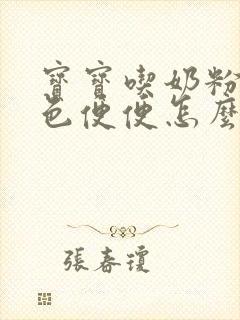 寶寶喫奶粉
色便便怎麼
張春瓊